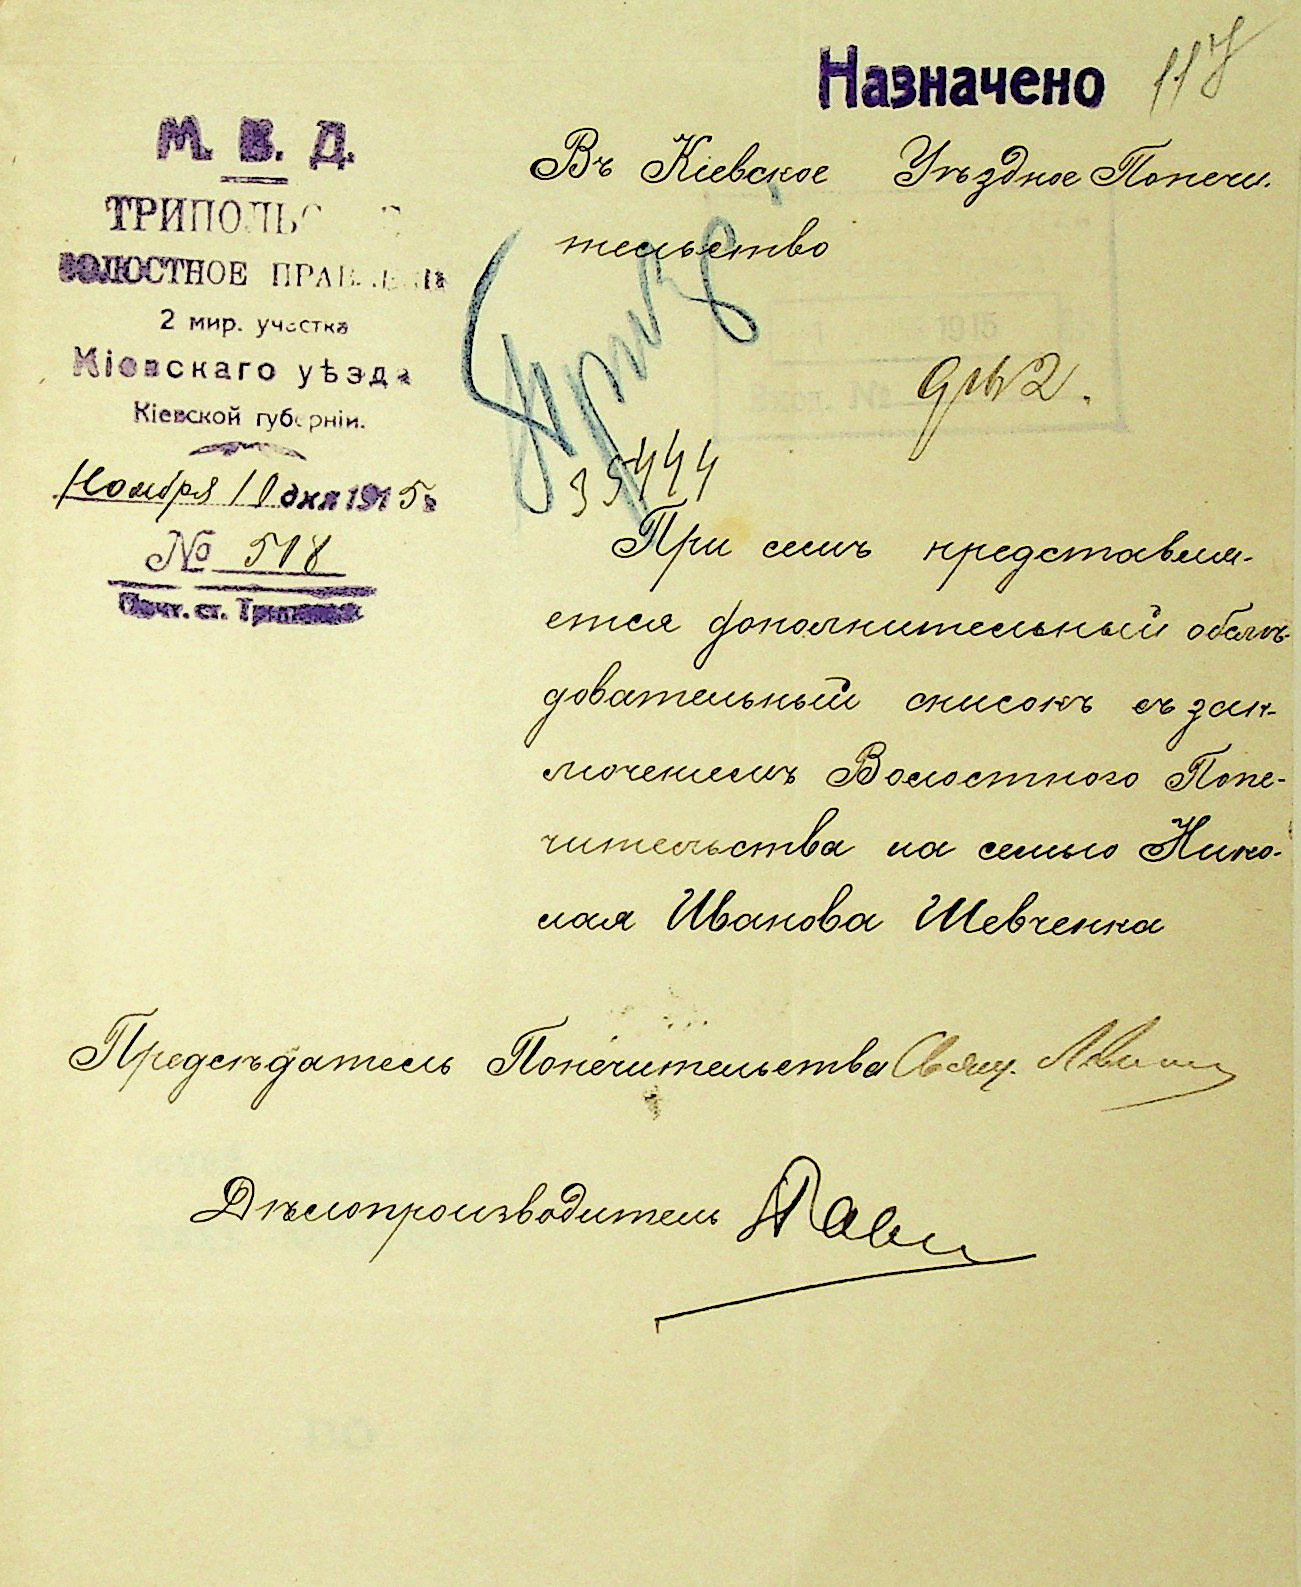 Назначено 117
М. В. Д.
ТРИПОЛЬС
ВОЛОСТНОЕ ПРАВЛЕНІЕ
2 мир. участка
Кіевскаго уѣзда
Кіевской губерніи.
Ноября 10 дня 1915 г.
№ 518
Почт. ст. Триполье
Въ Кіевское Уѣздное Попечи-
тельство
1915
Вход. №
35444
При семъ представля-
ется дополнительный обслѣ-
довательный списокъ съ зак-
люченіемъ Волостного Попе-
чительства на семью Нико-
лая Иванова Шевченка
Предсѣдатель Попечительства Свящ.
Дѣлопроизводитель